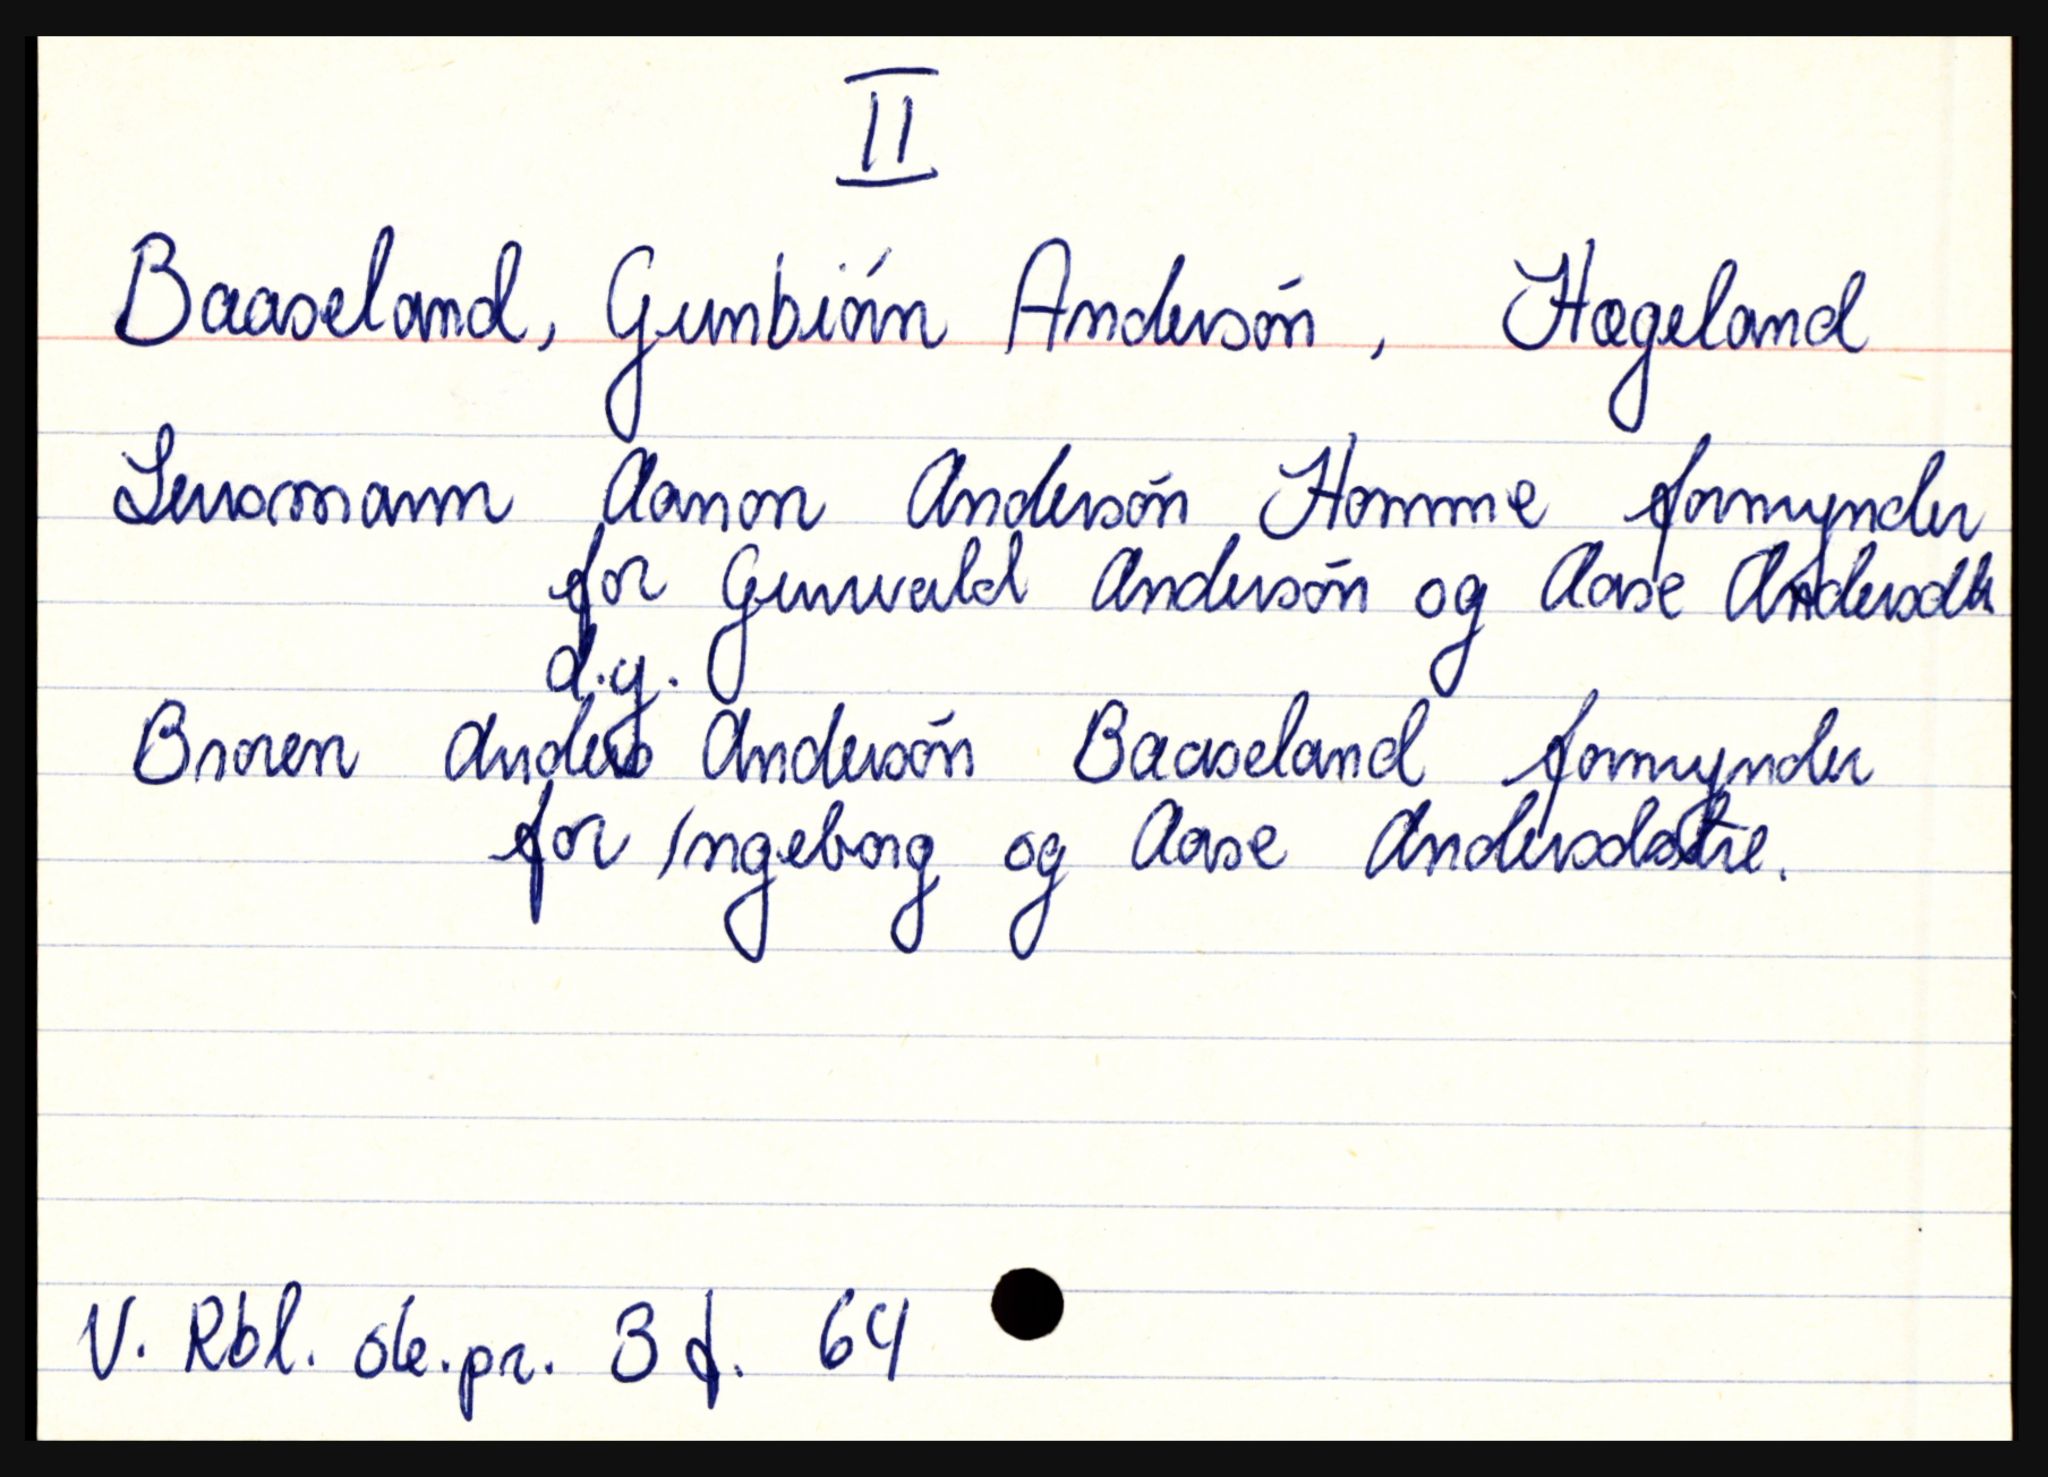 II
Baaseland, Gunbiórn Andersón, Hægeland
Lensmann Aanon Andersón Homme formynder
for Gunvald Andersón og Aase Andersdtr
d.y.
Broren Anders Andersón Baaseland formynder
for Ingeborg og Aase Andersdatre.
V. Rbl. sk.pr. 3 f. 64